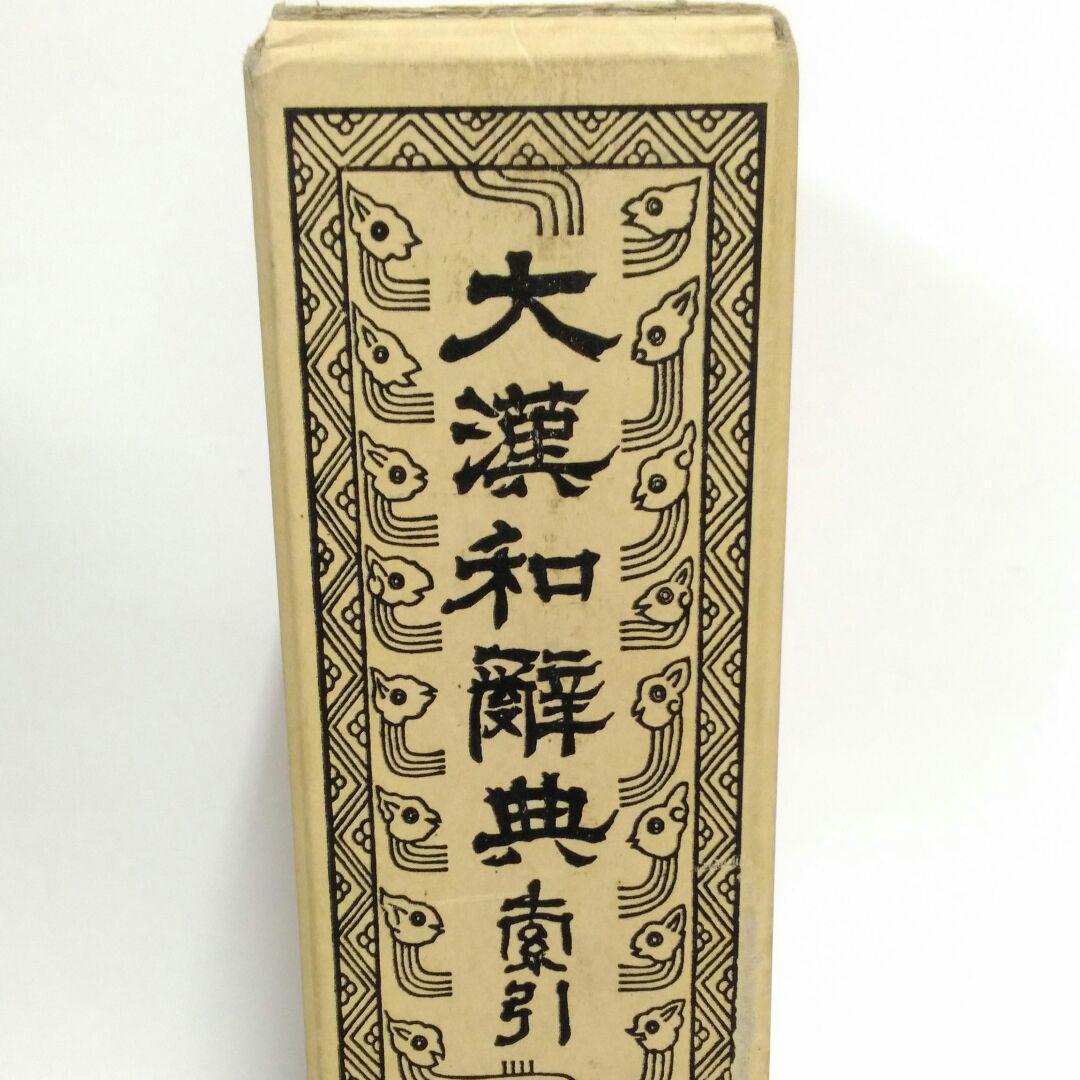 大漢和辭典索引